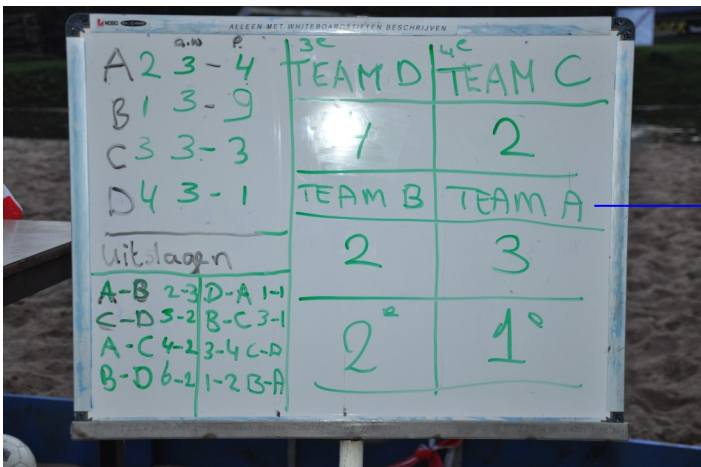 NOBO
ALLEEN MET WHITEBOARDSTIFTEN BESCHRIJVEN
g.w p.
A 2 3 - 4
B 1 3 - 9
C 3 3 - 3
D 4 3 - 1
Uitslagen
A-B 2-3
C-D 3-2
A-C 4-2
B-D 6-2
D-A 1-1
B-C 3-1
3-4 C-D
1-2 B-A
3e 4e
TEAM D TEAM C
4 2
TEAM B TEAM A
2 3
2e 1e